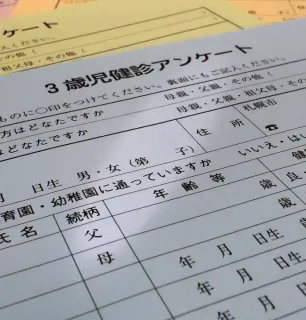 ケート
ください。
祖父母・その他(
3歳児健診アンケート
ものに○印をつけてください。裏面にもご記入ください。
方はどなたですか 母親・父親・祖父母・その他(
はどなたですか 母親・父親・
住所 札幌市
☎
月 日生 男・女(第 子)
育園・幼稚園に通っていますか いいえ・はい
氏名 続柄 年齢等 健
父 歳 良
母 歳
年 月 日生
年 月 日
年 月